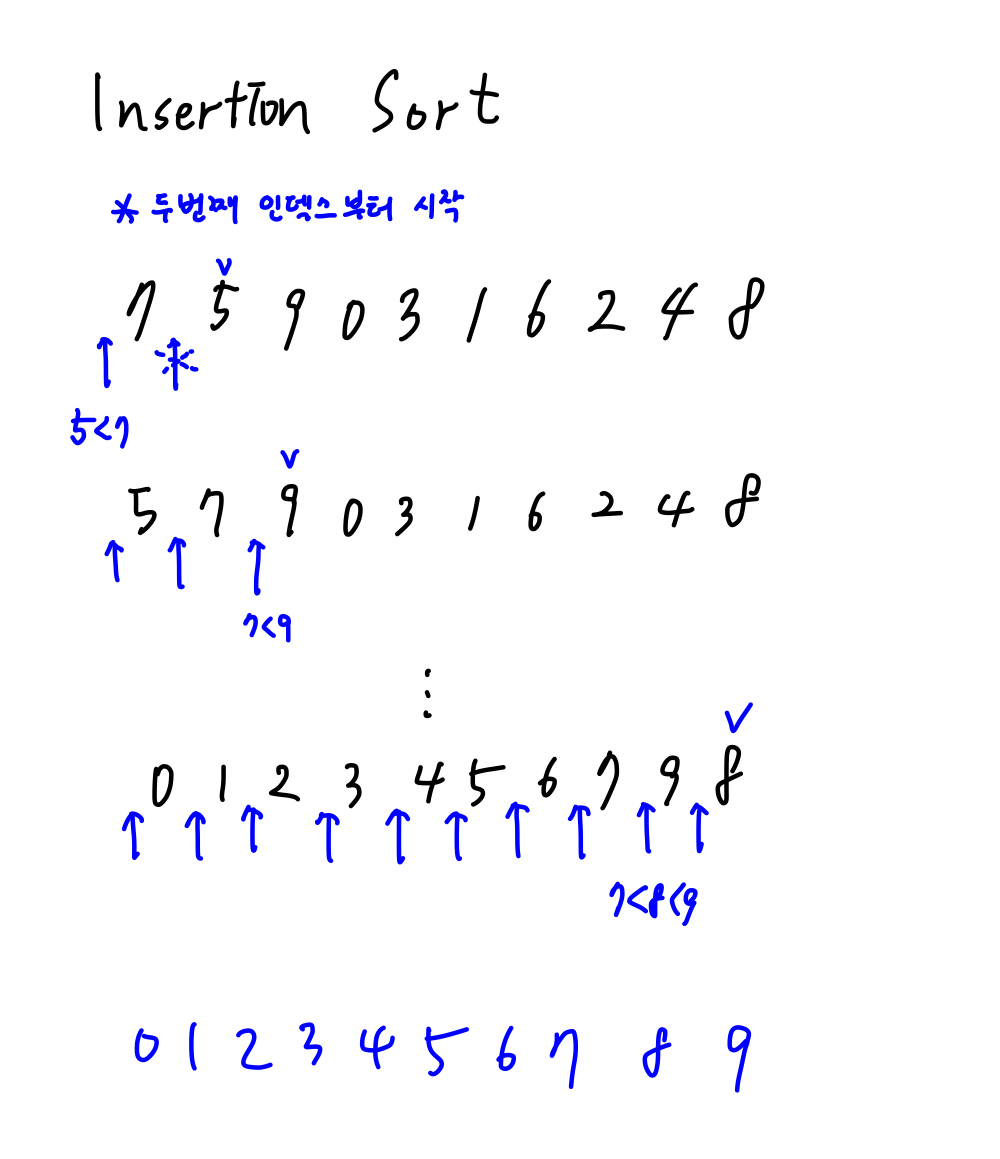 Insertion Sort
* 두번째 인덱스부터 시작
v
7 5 9 0 3 1 6 2 4 8
↑ ↑
5<7
v
5 7 9 0 3 1 6 2 4 8
↑ ↑ ↑
7<9
⋮
✓
0 1 2 3 4 5 6 7 9 8
↑ ↑ ↑ ↑ ↑ ↑ ↑ ↑ ↑ ↑
7<8<9
0 1 2 3 4 5 6 7 8 9